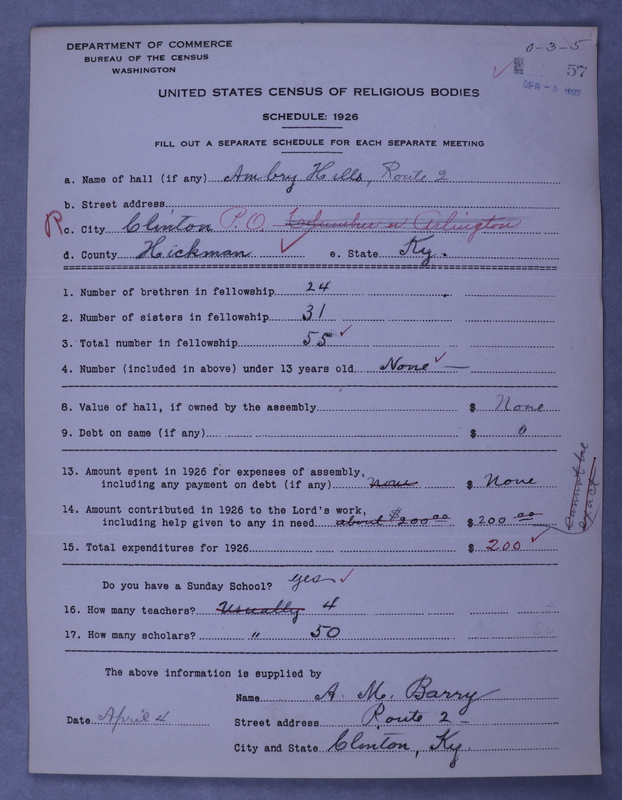 DEPARTMENT OF COMMERCE
BUREAU OF THE CENSUS
WASHINGTON
0-3-5
57
UNITED STATES CENSUS OF RELIGIOUS BODIES
SCHEDULE: 1926
FILL OUT A SEPARATE SCHEDULE FOR EACH SEPARATE MEETING
a. Name of hall (if any) Ambry Hills, Route 2
b. Street address
R c. City Clinton P.O. Columbus or Arlington
d. County Hickman e. State Ky.
1. Number of brethren in fellowship 24
2. Number of sisters in fellowship 31
3. Total number in fellowship 55
4. Number (included in above) under 13 years old None
8. Value of hall, if owned by the assembly $ None
9. Debt on same (if any) $ 0
13. Amount spent in 1926 for expenses of assembly,
including any payment on debt (if any) None $ None
14. Amount contributed in 1926 to the Lord's work,
including help given to any in need about $200 00 $ 200 00
cannot be exact
15. Total expenditures for 1926 $ 200
Do you have a Sunday School? yes
16. How many teachers? Usually 4
17. How many scholars? " 50
The above information is supplied by
Name A. M. Barry
Date April 4 Street address Route 2
City and State Clinton, Ky.